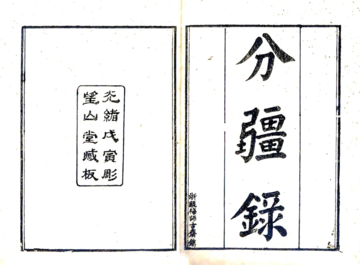 分疆錄
光緒戊寅彫
望山堂臧板